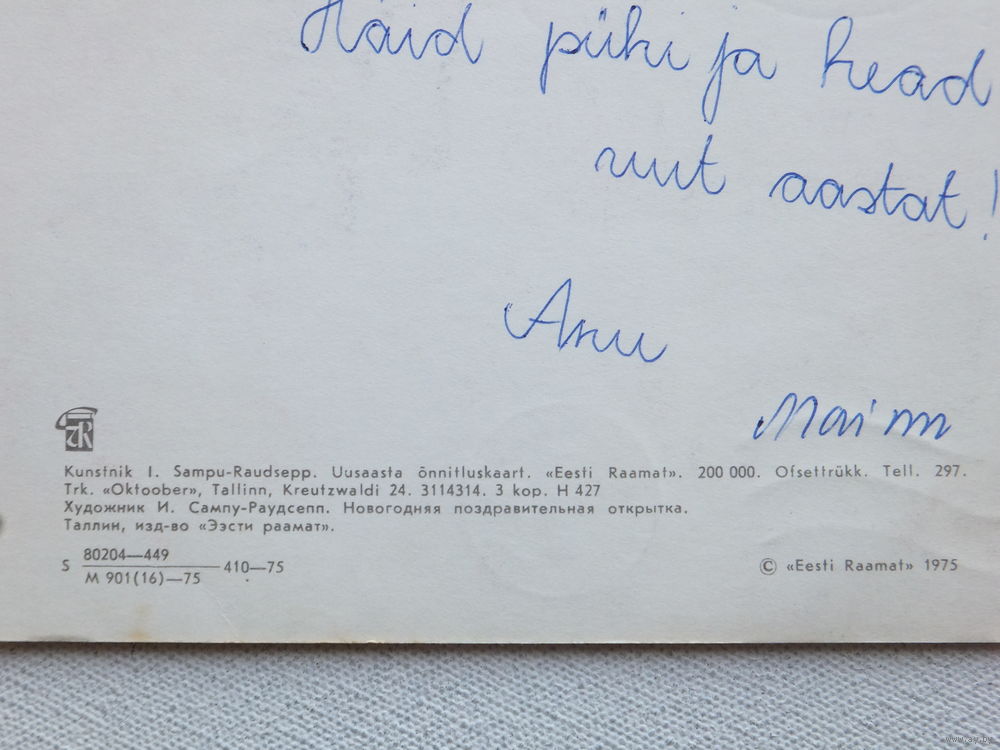 Häid pühi ja head
uut aastat!
Anu
Maimu
Kunstnik I. Sampu-Raudsepp. Uusaasta õnnitluskaart. «Eesti Raamat». 200 000. Ofsettrükk. Tell. 297.
Trk. «Oktoober», Tallinn, Kreutzwaldi 24. 3114314. 3 kop. H 427
Художник И. Сампу-Раудсепп. Новогодняя поздравительная открытка.
Таллин, изд-во «Ээсти раамат».
S 80204—449
М 901(16)—75 410—75
© «Eesti Raamat» 1975
www.ay.by